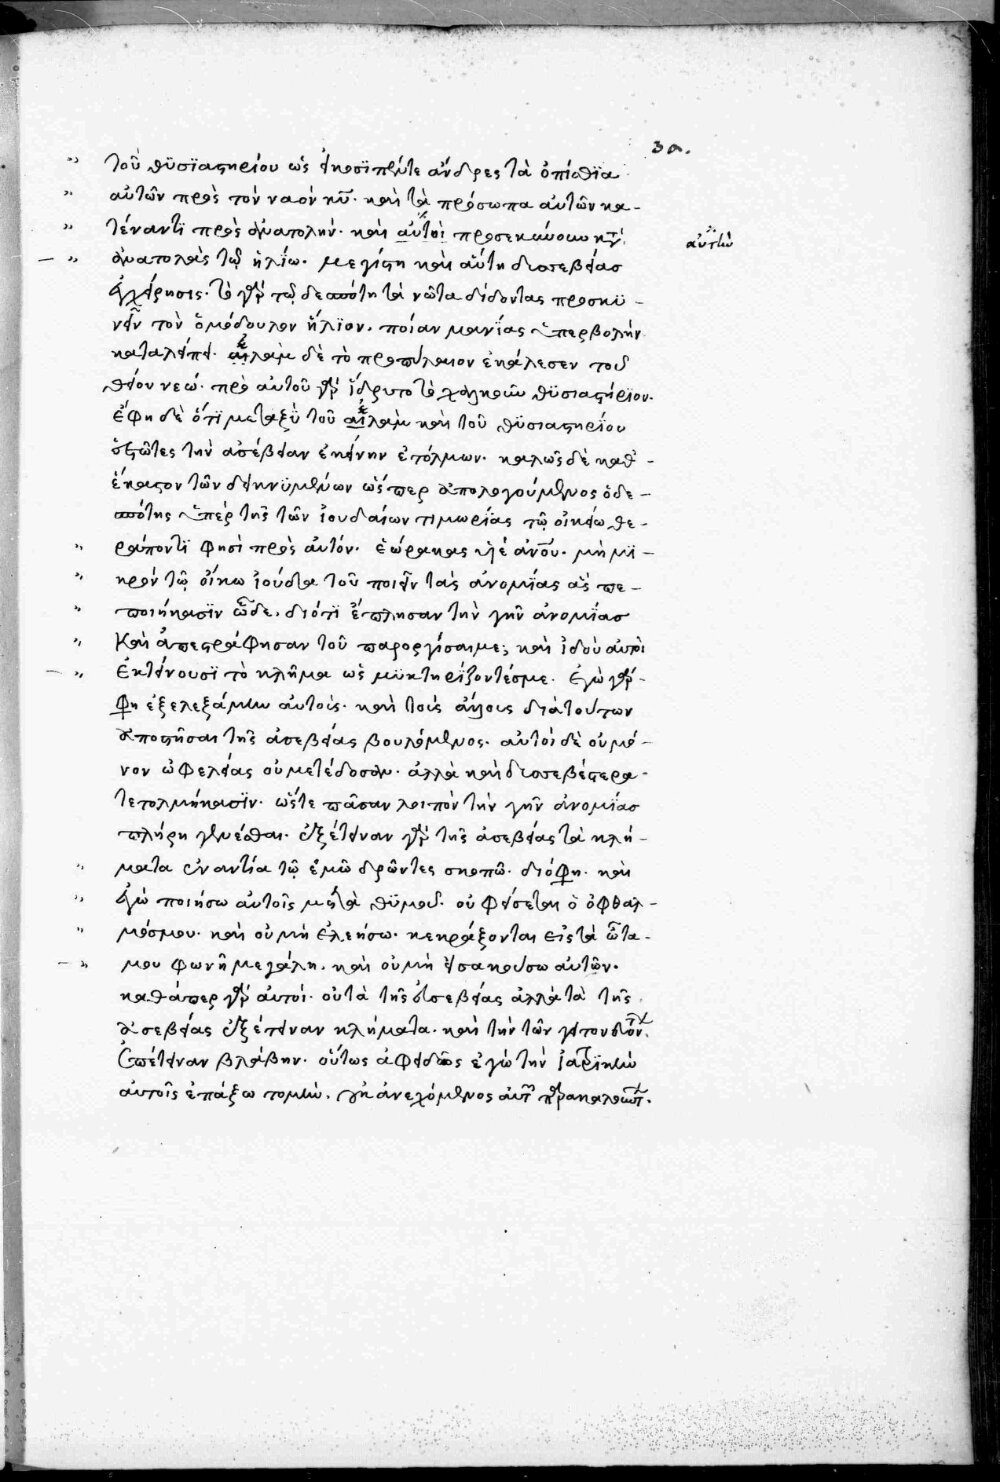 30.
τοῦ θϋσϊαστηρίου ὡς εἰκοσϊπέντε ἄνδρες τὰ ὀπίσθϊα
αὐτῶν πρὸς τὸν ναὸν κῡ· καὶ τὰ πρόσωπα αὐτῶν κα-
τέναντϊ πρὸς ἀνατολήν· καὶ αὐτοὶ προσεκύνουν κατ'
αὐτῶν
ἀνατολὰς τῷ ἡλίῳ. μεγίστη καὶ αὕτη δυσσεβείας
ἐγχείρησις· τὸ γὰρ τῷ δεσπότῃ τὰ νῶτα δίδοντας προσκϋ-
νεῖν τὸν ὁμόδουλον ἥλϊον. ποίαν μανΐας ὑπερβολὴν
καταλείπει. αἰλὰμ δὲ τὸ προπύλαιον ἐκάλεσεν τοῦ
θείου νεώ. πρὸ αὐτοῦ γὰρ ἵδρυτο τὸ χαλκοῦν θϋσιαστήρϊον.
ἔφη δὲ ὅτϊ μεταξὺ τοῦ αἰλὰμ καὶ τοῦ θϋσιαστηρίου
ἑστῶτες τὴν ἀσέβειαν ἐκείνην ἐτόλμων. καλῶς δὲ καθ' -
ἕκαστον τῶν δεικνϋμένων ὥσπερ ἀπολογούμενος ὁ δε-
σπότης ὑπὲρ τῆς τῶν ἰουδαίων τιμωρίας τῷ οἰκείῳ θε-
ράποντϊ φησὶ πρὸς αὐτόν. ἑώρακας υἱὲ ἀνοῦ. μὴ μϊ-
κρὸν τῷ οἴκῳ ἰούδα τοῦ ποιεῖν τὰς ἀνομίας ἃς πε-
ποιήκασϊν ὧδε. διότϊ ἔπλησαν τὴν γῆν ἀνομίας
Καὶ ἀπεστράφησαν τοῦ παροργίσαι με; καὶ ἰδοὺ αὐτοὶ
ἐκτείνουσϊ τὸ κλῆμα ὡς μϋκτηρίζοντές με. ἐγὼ γὰρ
φη ἐξελεξάμην αὐτούς. καὶ τοὺς ἄλλους διὰ τούτων
ἀποστῆσαι τῆς ἀσεβείας βουλόμενος. αὐτοὶ δὲ οὐ μό-
νον ὠφελείας οὐ μετέδοσαν. ἀλλὰ καὶ δυσσεβέστερα
τετολμήκασϊν. ὥστε πᾶσαν λοιπὸν τὴν γῆν ἀνομίας
πλήρη γενέσθαι. ἐξέτειναν γὰρ τῆς ἀσεβείας τὰ κλή-
ματα ἐναντία τῷ ἐμῷ δρῶντες σκοπῷ. διό φη. καὶ
ἐγὼ ποιήσω αὐτοῖς μετὰ θϋμοῦ. οὐ φείσεται ὁ ὀφθαλ-
μός μου. καὶ οὐ μὴ ἐλεήσω. κεκράξονται εἰς τὰ ὦτα
μου φωνῇ μεγάλη. καὶ οὐ μὴ εἰσακούσω αὐτῶν.
καθάπερ γὰρ αὐτοὶ. οὐ τὰ τῆς εὐσεβείας ἀλλὰ τὰ τῆς
ἀσεβείας ἐξέτειναν κλήματα. καὶ τὴν τῶν γειτονούντων
ἐπέτειναν βλάβην. οὕτως ἀφειδῶς ἐγὼ τὴν ἰατρϊκὴν
αὐτοῖς ἐπάξω τομήν. οὐκ ἀνεχόμενος αὐτ παρακαλούντ.